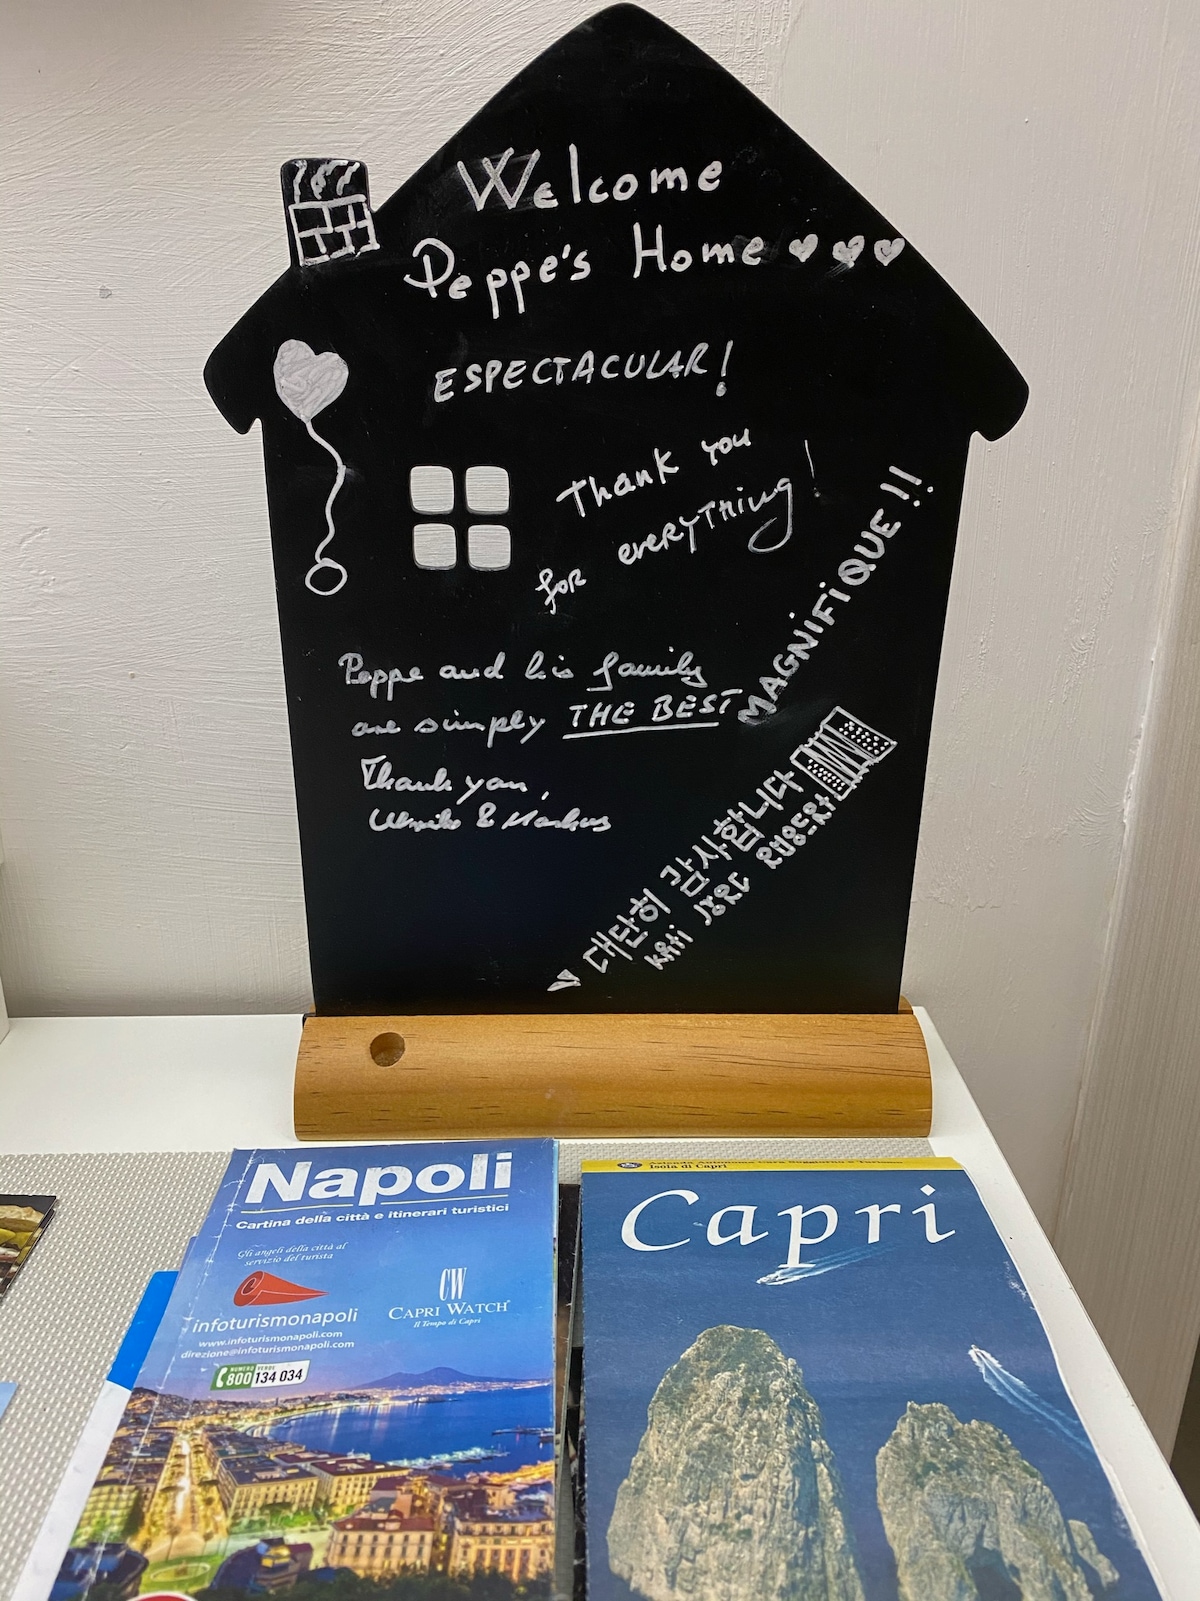 Welcome
Peppe's Home
ESPECTACULAR!
Thank you
for everything!
MAGNIFIQUE!!
Peppe and his family
are simply THE BEST
Thank you,
& Markus
대단히 감사합니다
Napoli
Cartina della città e itinerari turistici
Gli angeli della città al
servizio del turista
infoturismonapoli
www.infoturismonapoli.com
direzione@infoturismonapoli.com
NUMERO VERDE
800 134 034
CW
CAPRI WATCH
Il Tempo di Capri
Azienda Autonoma Cura Soggiorno e Turismo
Isola di Capri
Capri